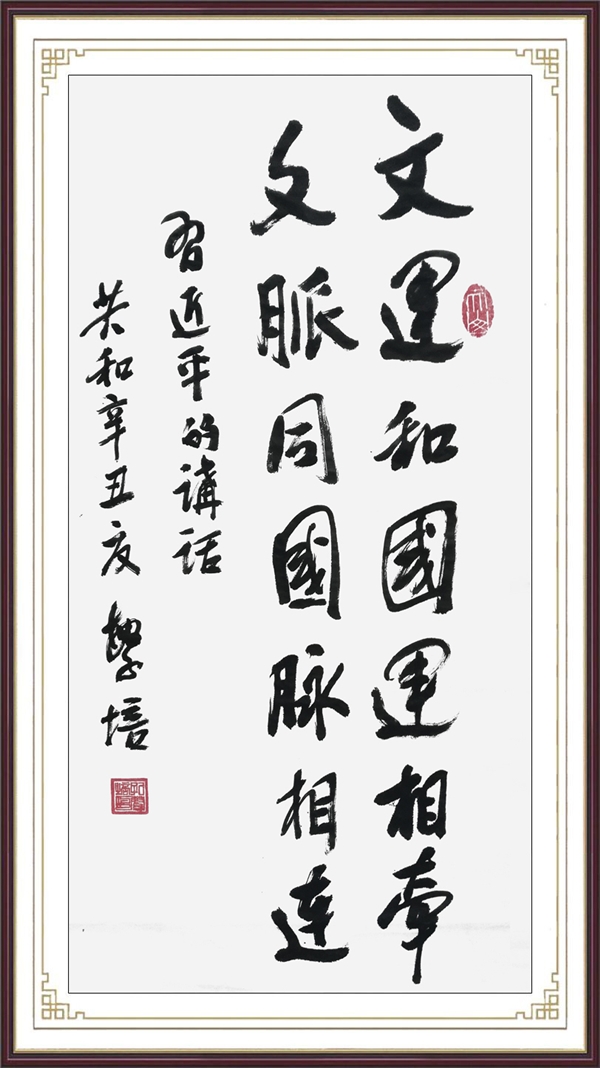 文運和國運相牽
文脈同國脉相連
習近平的講話
共和辛丑夏 培